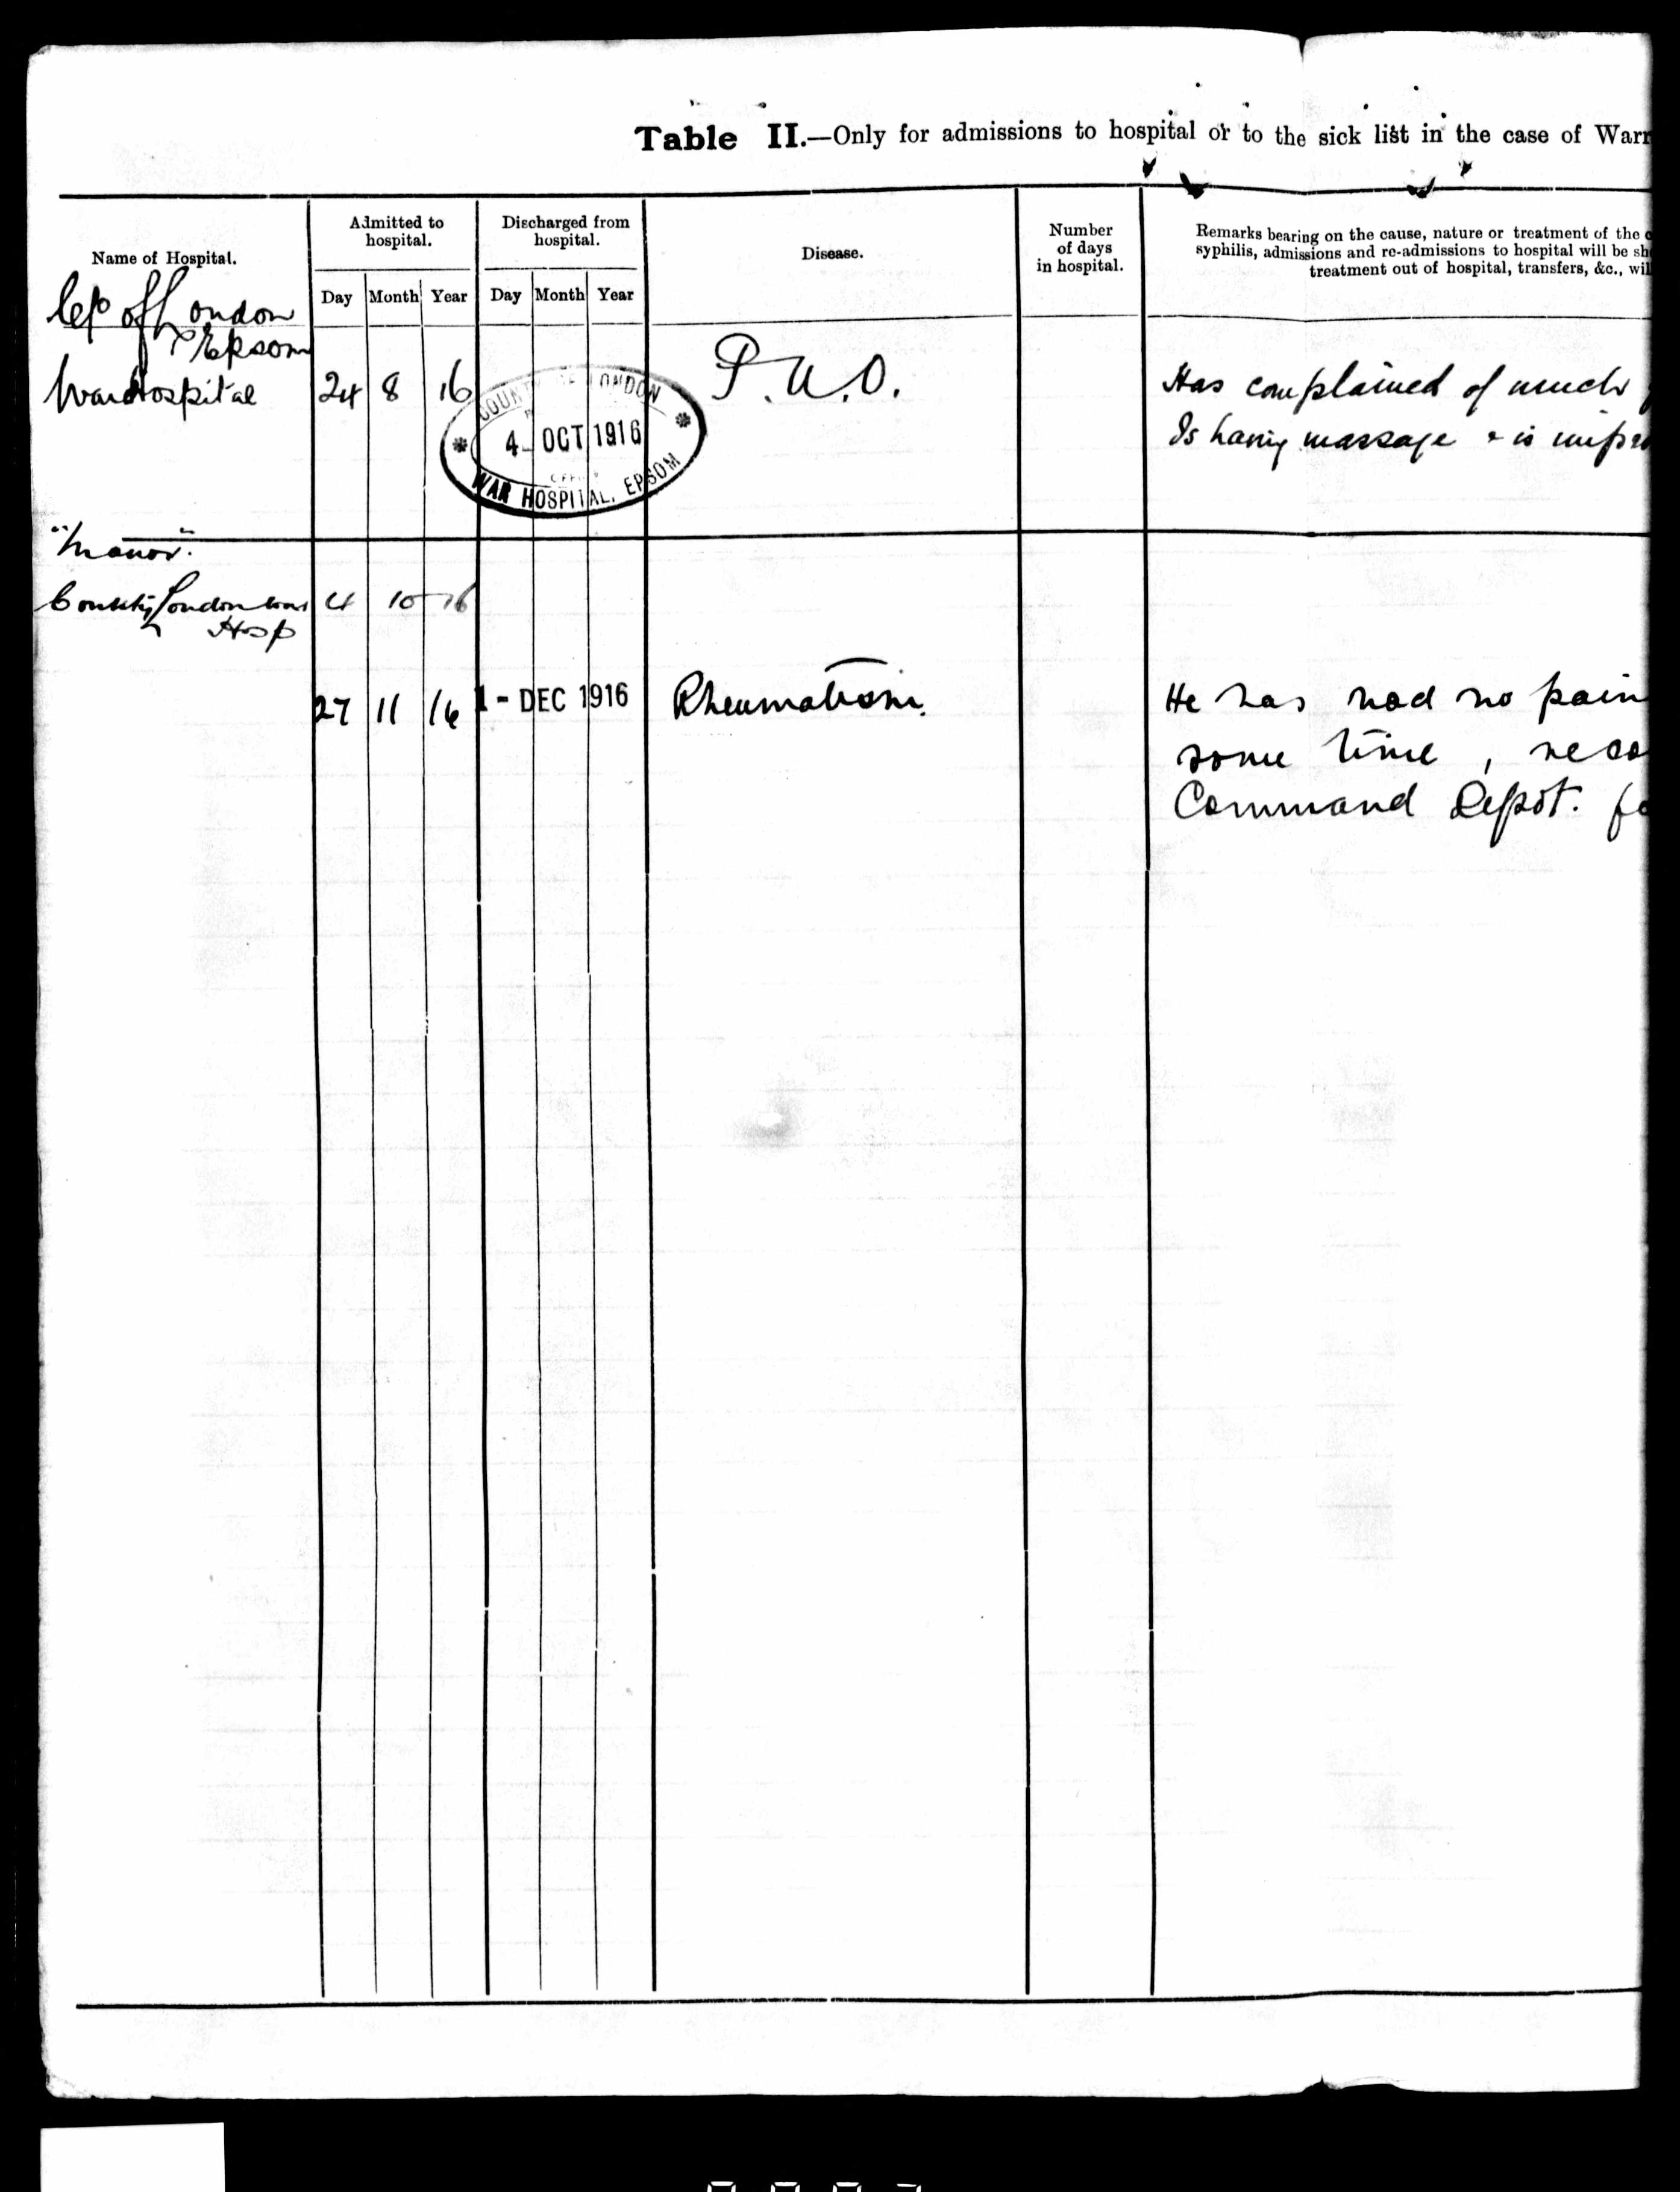 Table II.—Only for admissions to hospital or to the sick list in the case of Warr
Name of Hospital.
Admitted to hospital.
Discharged from hospital.
Disease.
Number of days in hospital.
Remarks bearing on the cause, nature or treatment of the
syphilis, admissions and re-admissions to hospital will be sh
treatment out of hospital, transfers, &c., wil
Day Month Year Day Month Year
Co of London
Epsom
War Hospital 24 8 16 P.U.O. Has complained of much
Is having massage & is impro
COUNTY OF LONDON
4 - OCT 1916
WAR HOSPITAL, EPSOM
"Manor".
County London War 4 10 16
Hosp
27 11 16 1 - DEC 1916 Rheumatism. He has had no pain
some time, reco
Command Depot. fo